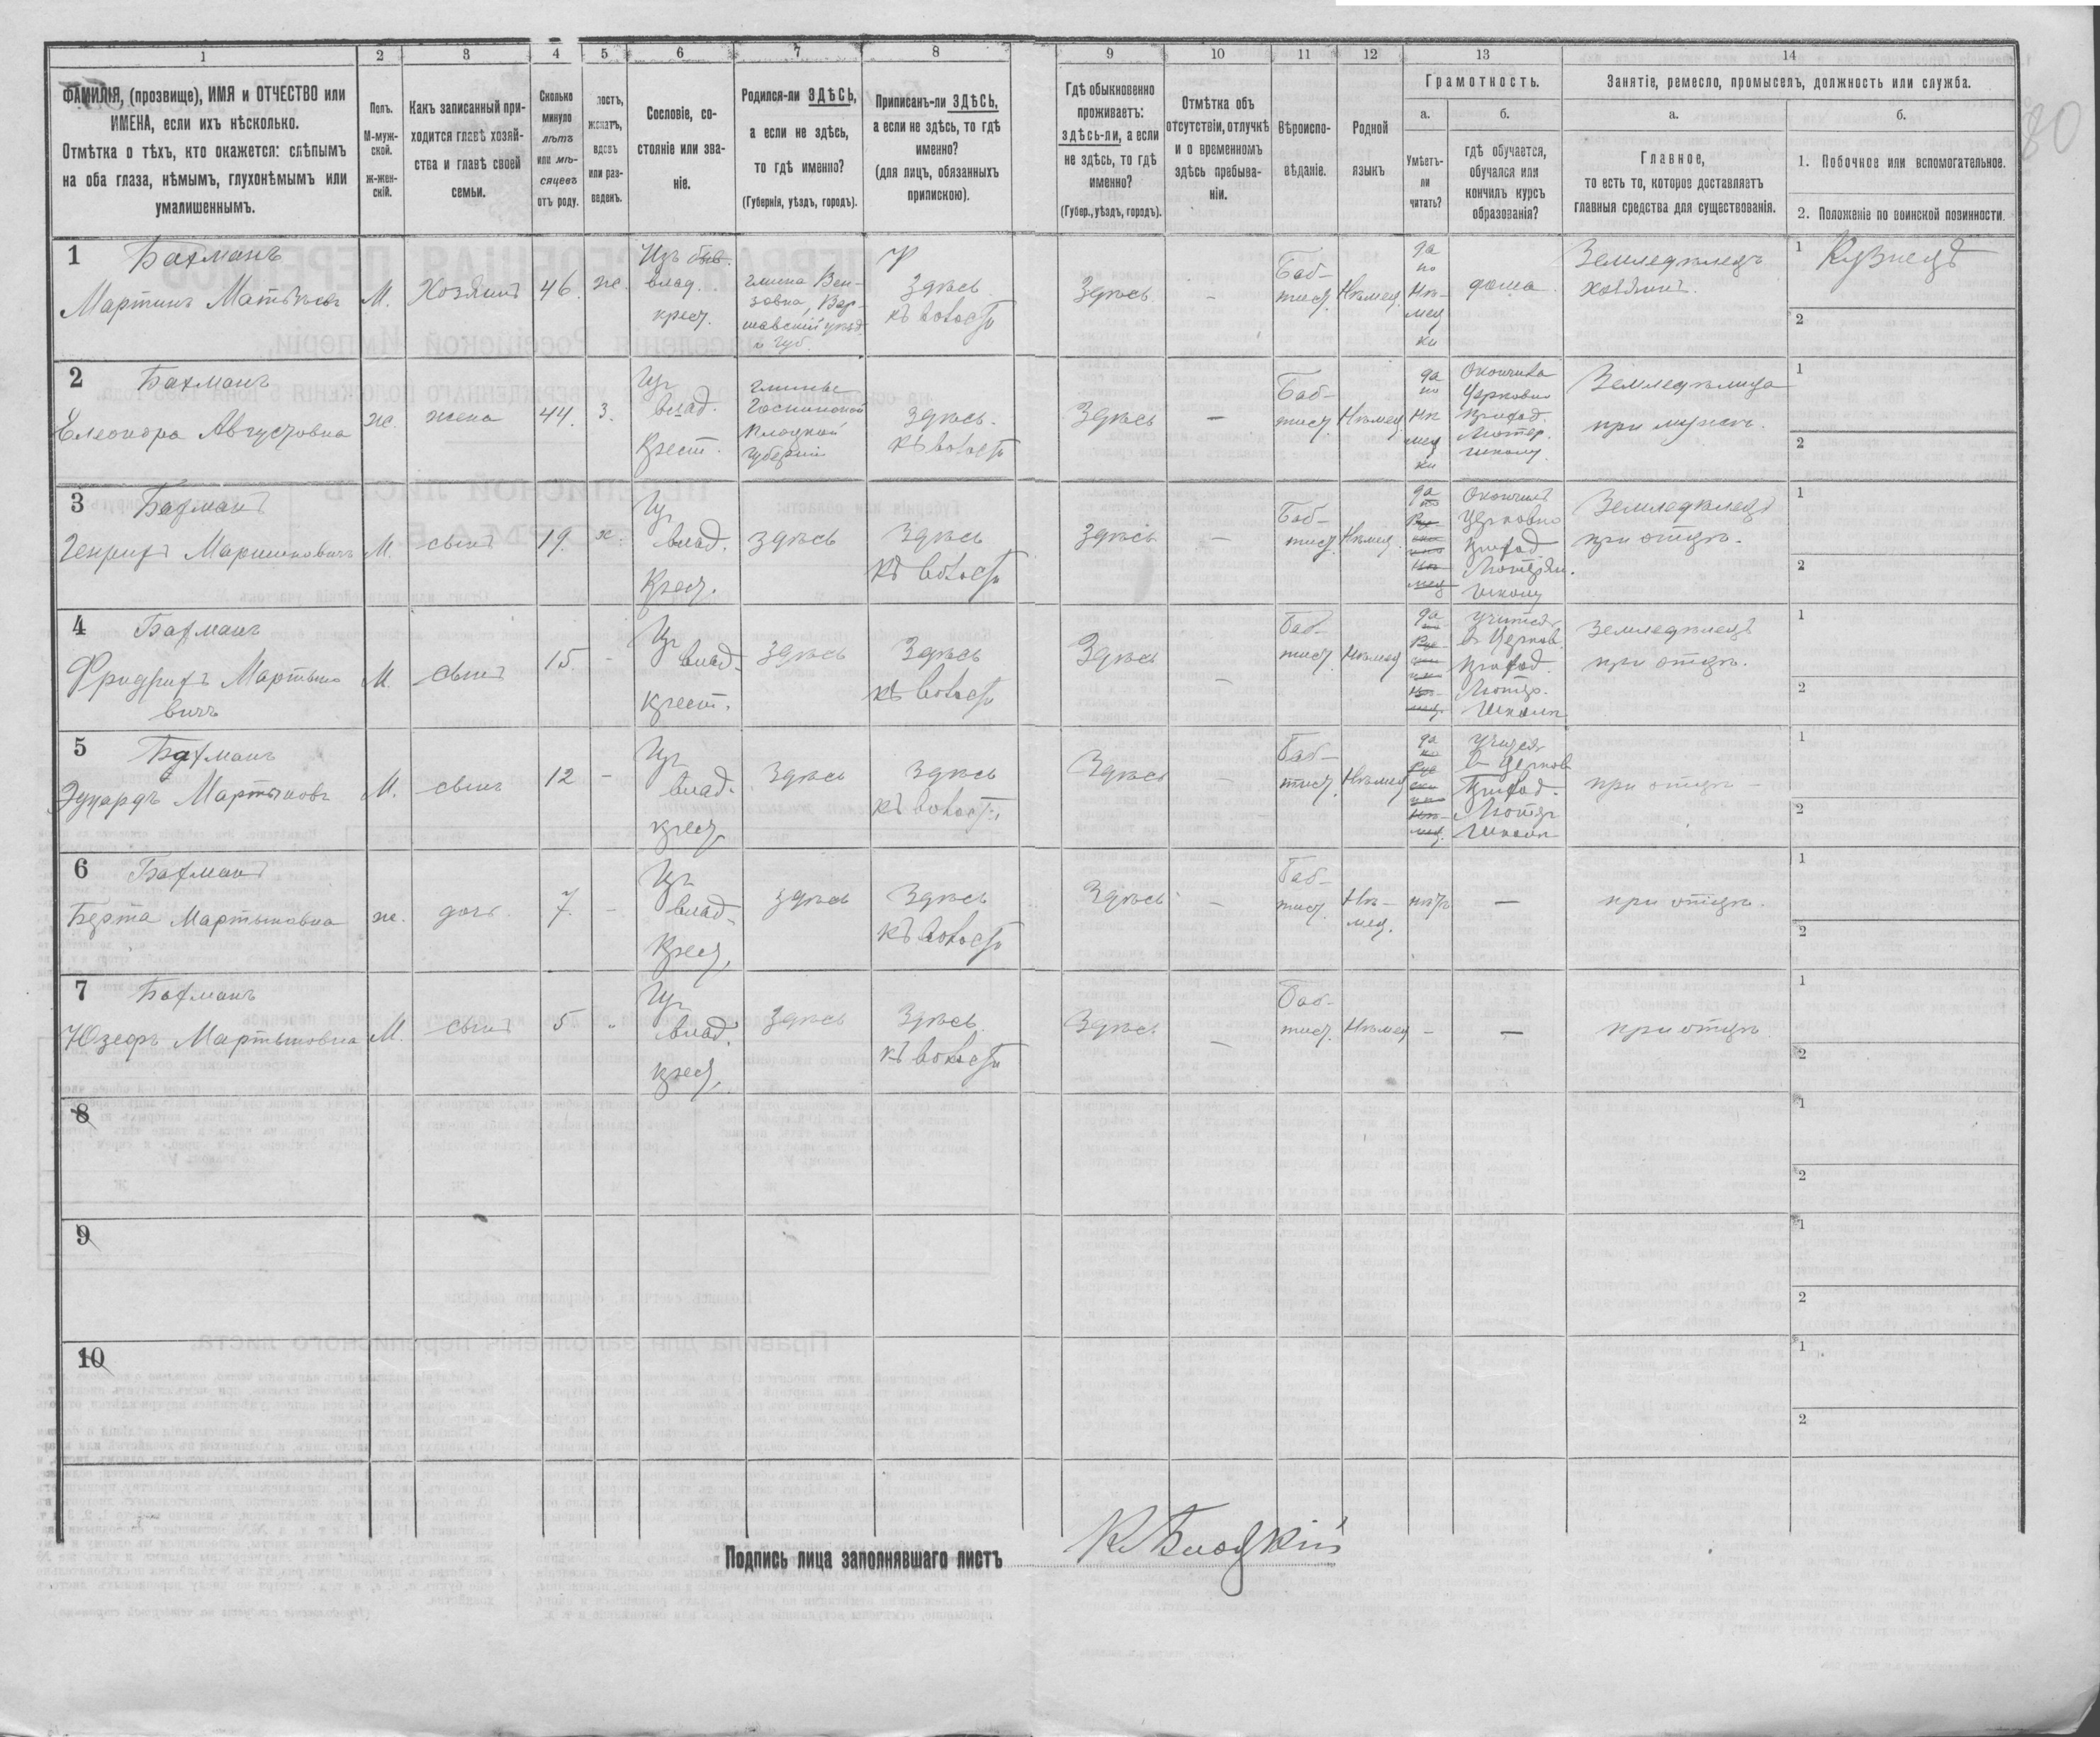 1 2 3 4 5 6 7 8 9 10 11 12 13 14
ФАМИЛІЯ, (прозвище), ИМЯ и ОТЧЕСТВО или
ИМЕНА, если ихъ нѣсколько.
Отмѣтка о тѣхъ, кто окажется: слѣпымъ
на оба глаза, нѣмымъ, глухонѣмымъ или
умалишеннымъ.
Полъ.
М-муж-
ской.
ж-жен-
скій.
Какъ записанный при-
ходится главѣ хозяй-
ства и главѣ своей
семьи.
Сколько
минуло
лѣтъ
или мѣ-
сяцевъ
отъ роду.
лостъ,
женатъ,
вдовъ
или раз-
веденъ.
Сословіе, со-
стояніе или зва-
ніе.
Родился-ли ЗДѢСЬ,
а если не здѣсь,
то гдѣ именно?
(Губернія, уѣздъ, городъ).
Приписанъ-ли ЗДѢСЬ,
а если не здѣсь, то гдѣ
именно?
(для лицъ, обязанныхъ
припискою).
Гдѣ обыкновенно
проживаетъ:
здѣсь-ли, а если
не здѣсь, то гдѣ
именно?
(Губер., уѣздъ, городъ).
Отмѣтка объ
отсутствіи, отлучкѣ
и о временномъ
здѣсь пребыва-
ніи.
Вѣроиспо-
вѣданіе.
Родной
языкъ
Грамотность.
а.
Умѣетъ-
ли
читать?
б.
гдѣ обучается,
обучался или
кончилъ курсъ
образованія?
Занятіе, ремесло, промыселъ, должность или служба.
а.
Главное,
то есть то, которое доставляетъ
главныя средства для существованія.
б.
1. Побочное или вспомогательное.
2. Положеніе по воинской повинности.
80
1 Бахманъ
Мартинъ Матѣевъ
М.
Хозяинъ
46
ж.
Изъ быв.
влад.
крест.
гмина Вен-
Вар-
шавскій уѣзд
и губ.
Здѣсь
къ волости
Здѣсь
-
Бап-
тист.
Нѣмец.
да
по
Нѣ-
мец
ки
дома
Земледѣлецъ
хозяинъ.
1 Кузнецъ
2
2 Бахманъ
Елеонора Августовна
ж.
жена
44.
з.
Из
влад.
Крест.
гмины
Плоцкой
губерніи
здѣсь.
къ волости
Здѣсь
-
Бап-
тист.
Нѣмец.
да
по
Нѣ
мец
ки
Окончила
Церковно
приход.
Лютер.
школу.
Земледѣлица
при мужѣ.
1
2
3 Бахманъ
Генрихъ Мартиновичъ
М.
сынъ
19.
х.
Из
влад.
Крест.
здѣсь
Здѣсь
къ волости
здѣсь
-
Бап-
тист.
Нѣмец.
да
по
Окончилъ
Церковно
приход
Лютеран.
школу
Земледѣлецъ
при отцѣ.
1
2
4 Бахманъ
Фридрихъ Мартыно
вичъ
М.
сынъ
15.
-
Из
влад.
крест.
здѣсь
Здѣсь
къ волости
Здѣсь
-
Бап-
тист.
Нѣмец
да
учится
в Церков.
приход.
Лютер.
школѣ
Земледѣлецъ
при отцѣ.
1
2
5 Бахманъ
Эдуардъ Мартыновъ
М.
сынъ
12
-
Из
влад.
крест.
Здѣсь
Здѣсь
къ волости
Здѣсь
-
Бап-
тист.
Нѣмец
да
учится
в Церков
приход.
Лютер
школѣ
при отцѣ -
1
2
6 Бахманъ
Берта Мартыновна
ж.
дочь
7.
-
Из
влад.
Крест.
здѣсь
Здѣсь
къ волости
Здѣсь
-
Бап-
тист.
Нѣ-
мец.
нѣтъ
-
при отцѣ.
1
2
7 Бахманъ
Юзефъ Мартыновна
М.
сынъ
5
"
Из
влад.
крест.
Здѣсь
Здѣсь
къ волости
Здѣсь.
-
Бап-
тист.
Нѣмец
-
-
при отцѣ.
1
2
8
1
2
9
1
2
10
1
2
Подпись лица заполнявшаго листъ